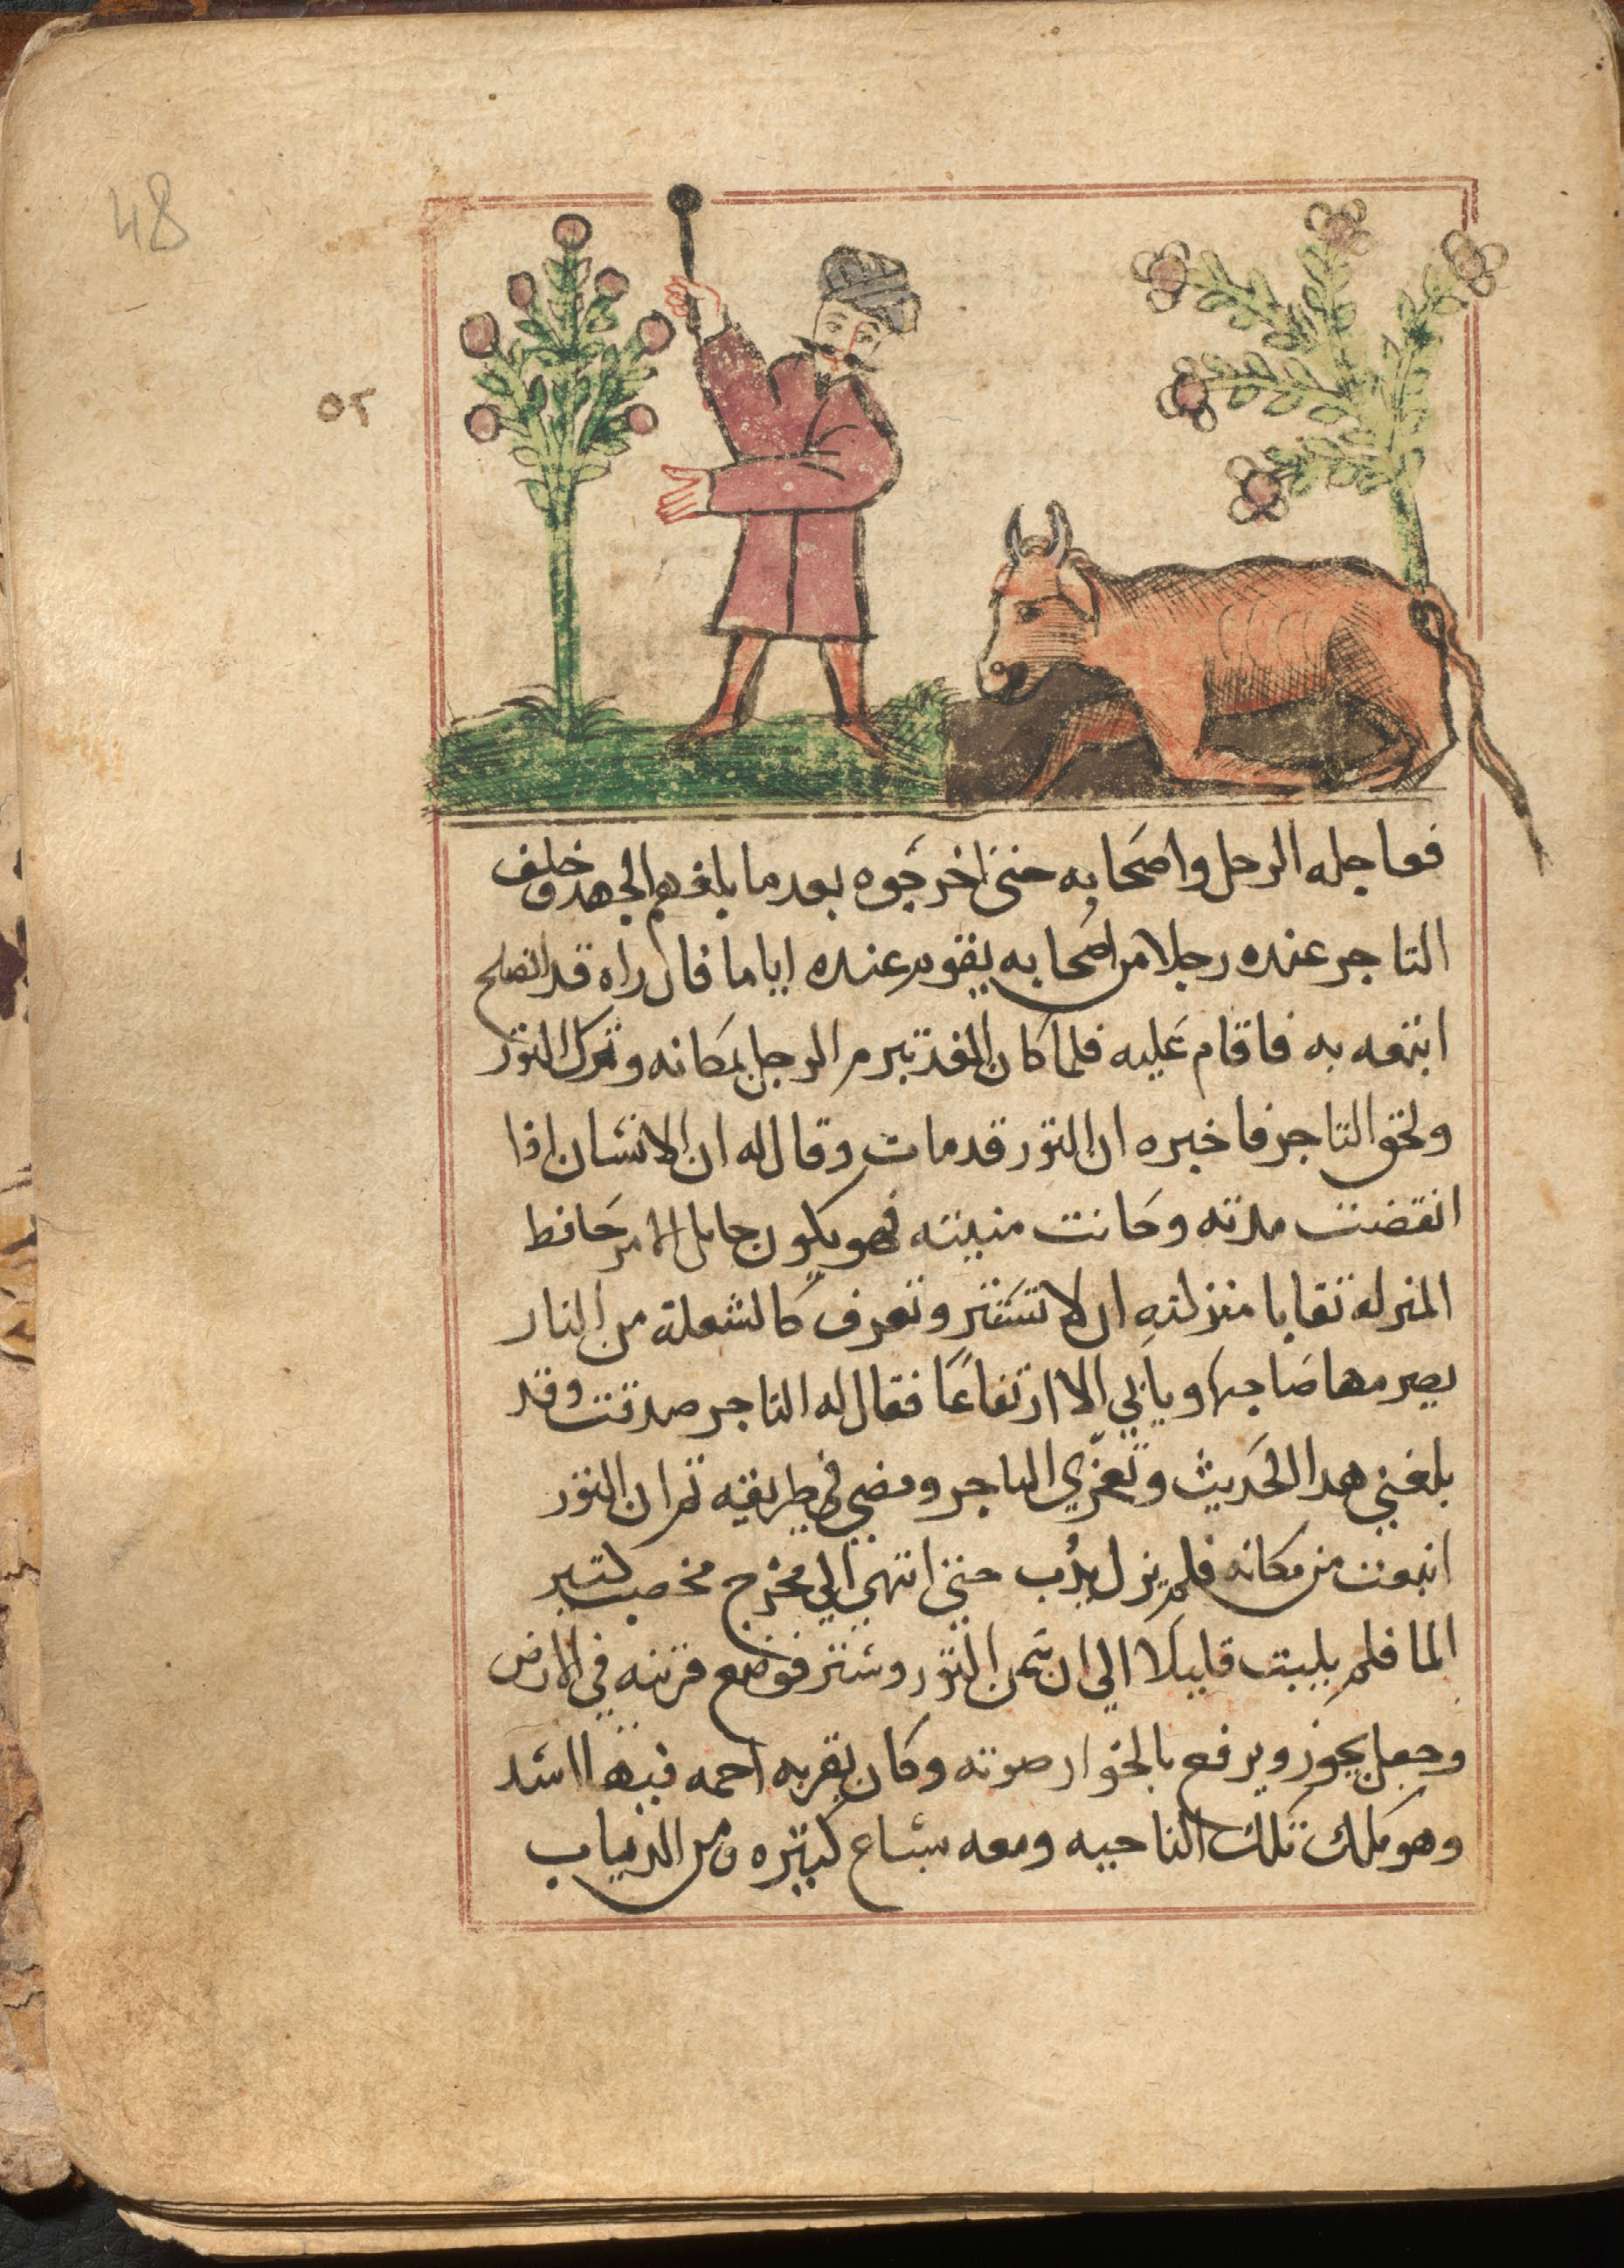 48
٥٢
فعاجله الرجل واصحابه حتى اخرجوه بعد ما بلغ بهم الجهد وخلف
التاجر عنده رجلا من اصحابه يقوم عنده اياما فان راه قد انصلح
اتبعه به فاقام عليه فلما كان الغد تبرم الرجل بمكانه وترك الثور
ولحق التاجر فاخبره ان الثور قد مات وقال له ان الانسان اذا
انقضت مدته وحانت منيته فهو يكون حامل الامر حافظ
المنزله تقابا منزلته ان لا تشتتر وتعرف كالشعلة من النار
يصرمها صاحبها ويابي الا ارتفاعًا فقال له التاجر صدقت وقد
بلغني هدا الحديث وتعزّي التاجر ومضي في طريقه ثم ان الثور
انبعث من مكانه فلم يزل يدُب حتى انتهى الي مخرج مخصب كثير
الما فلم يلبث قليلا الي ان سمن الثور وشتر فوضع قرنه في الارض
وجعل يخور ويرفع بالخوار صوته وكان بقربه اجمه فيها اسد
وهو ملك تلك الناحيه ومعه سباع كثيره من الدياب